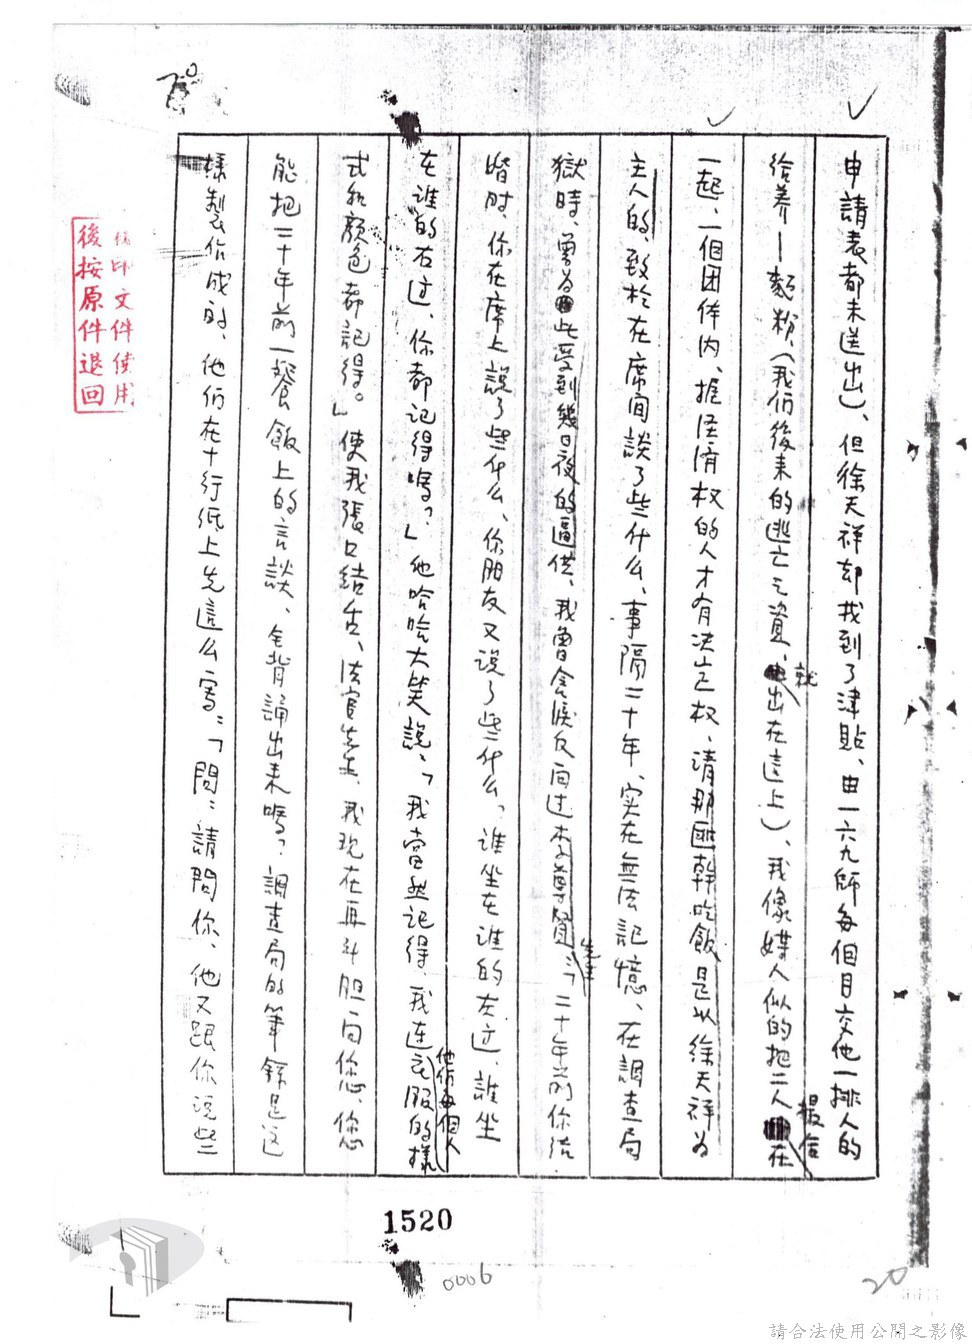 申請表都未送出)、但徐天祥却找到了津貼、由一六九師每個月交他一排人的
給养—麵粉(我们後来的逃亡之資、就出在這上)、我像媒人似的把二人撮合在
一起、一個团体内、握经濟权的人才有决定权、清那匪幹吃飯是以徐天祥为
主人的、致於在席间談了些什么、事隔二十年、实在無法記憶、在調查局
獄時、曾为此受到幾日夜的逼供、我曾含淚反问过李尊賢先生:「二十年前你结
婚时、你在席上說了些什么、你朋友又说了些什么、谁坐在谁的左边、誰坐
在谁的右边、你都记得嗎?」他哈哈大笑說:「我當然记得、我连他们每個人衣服的樣
式和顏色都記得。」使我張口結舌、法官先生、我现在再斗胆问您、您
能把二十年前一餐飯上的言談、全背誦出来嗎?調查局的筆錄是这
樣製作成的、他们在十行纸上先這么寫:「問:請問你、他又跟你说些
印文件使用
後按原件退回
1520
0006
20
請合法使用公開之影像